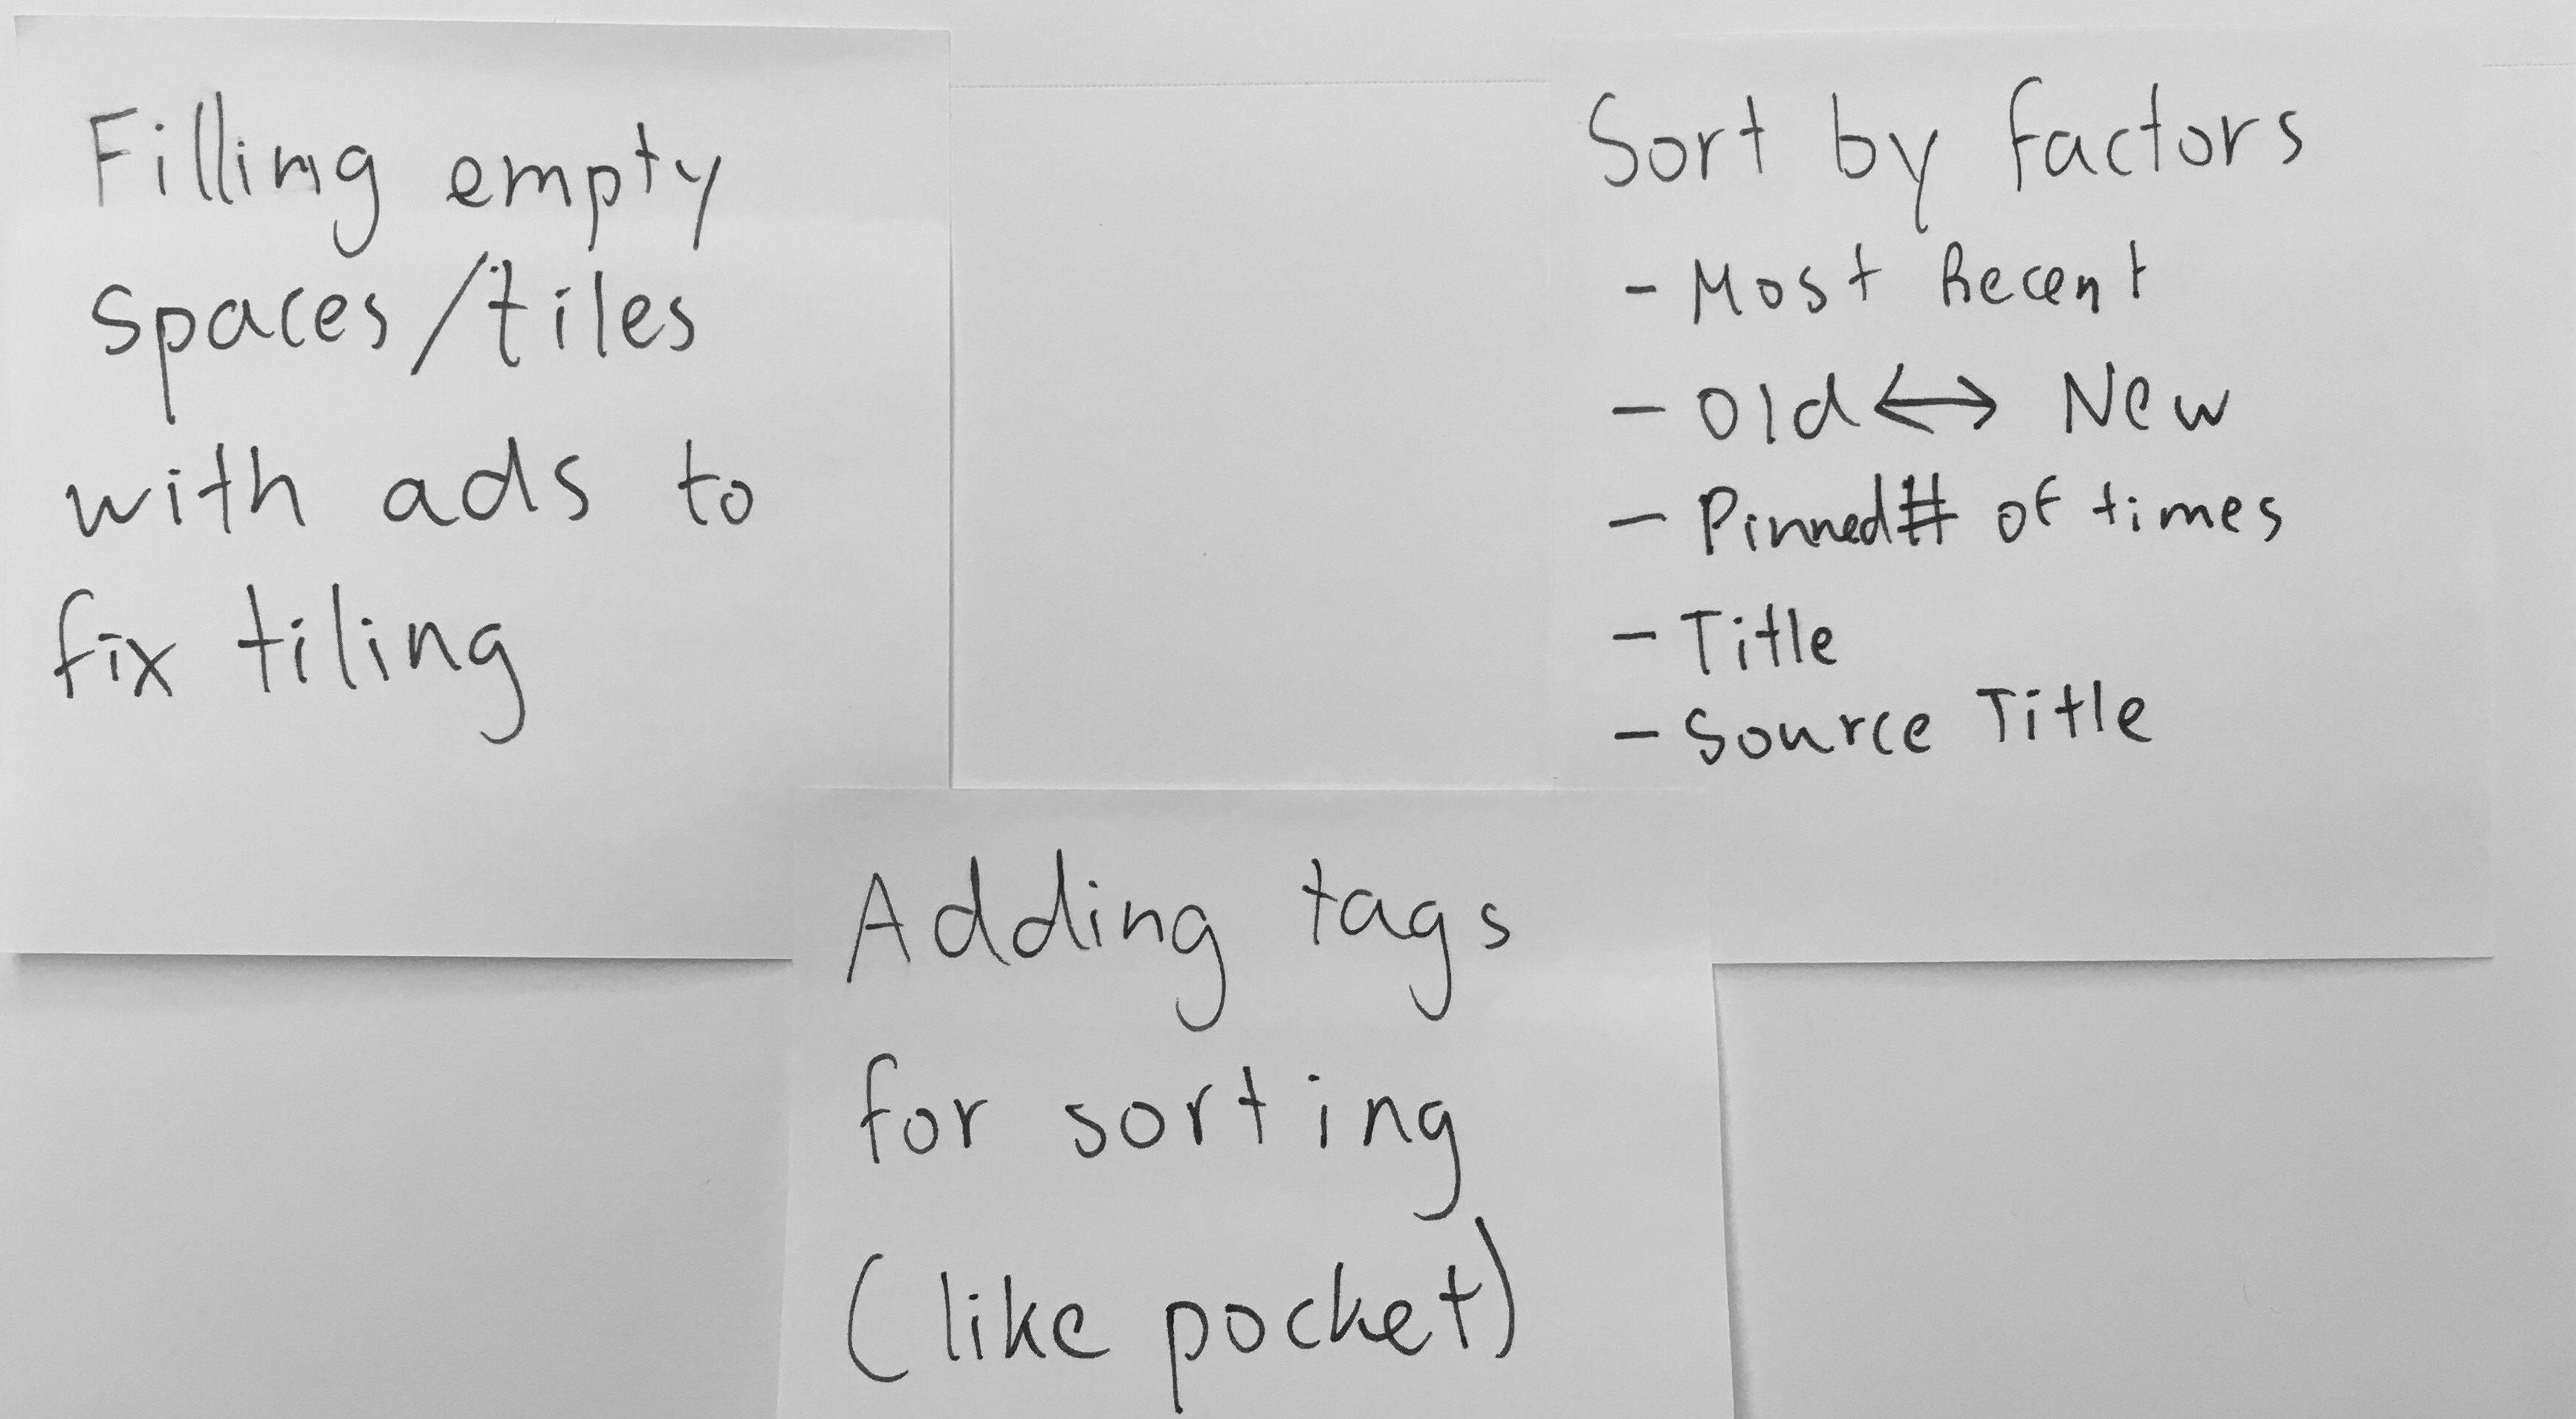 Filling empty
spaces/tiles
with ads to
fix tiling
Sort by factors
- Most Recent
- Old ↔ New
- Pinned # of times
- Title
- Source Title
Adding tags
for sorting
(like pocket)